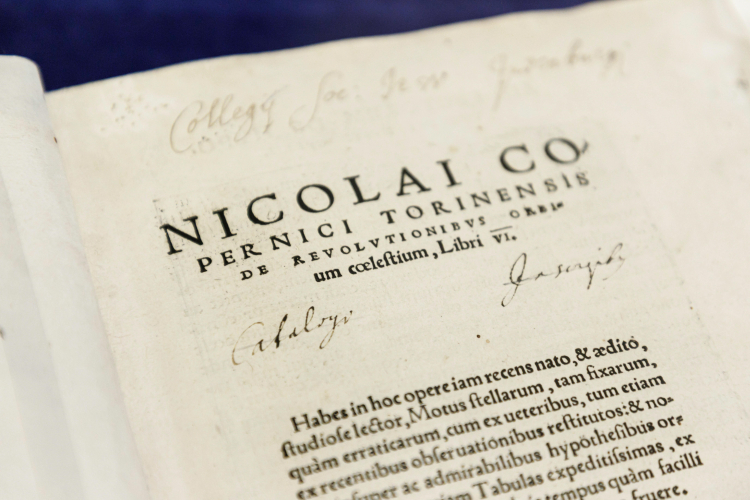 Collegij Soc: Jesu Judenburgi
NICOLAI CO
PERNICI TORINENSIS
DE REVOLVTIONIBVS ORBI-
um cœleſtium, Libri VI.
Catalogo Inscriptus
Habes in hoc opere iam recens nato, & ædito,
ſtudioſe lector, Motus ſtellarum, tam fixarum,
quàm erraticarum, cum ex ueteribus, tum etiam
ex recentibus obſeruationibus reſtitutos: & no-
inſuper ac admirabilibus hypotheſibus or-
Tabulas expeditiſsimas, ex
tempus quàm facilli
fruere.